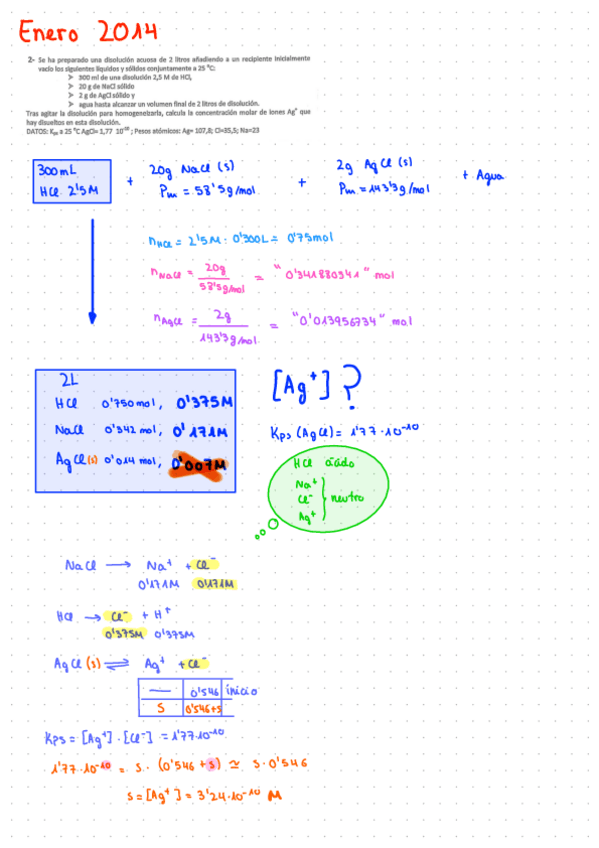 Enero 2014
2- Se ha preparado una disolución acuosa de 2 litros añadiendo a un recipiente inicialmente
vacío los siguientes líquidos y sólidos conjuntamente a 25 ºC:
➤ 300 ml de una disolución 2,5 M de HCl,
➤ 20 g de NaCl sólido
➤ 2 g de AgCl sólido y
➤ agua hasta alcanzar un volumen final de 2 litros de disolución.
Tras agitar la disolución para homogeneizarla, calcula la concentración molar de iones Ag⁺ que
hay disueltos en esta disolución.
DATOS: Kps a 25 ºC AgCl= 1,77 10⁻¹⁰ ; Pesos atómicos: Ag= 107,8; Cl=35,5; Na=23
300mL
HCl 2'5M
+ 20g NaCl (s)
Pm = 58'5g/mol
+ 2g AgCl (s)
Pm = 143'3g/mol
+ Agua
nHCl = 2'5M · 0'300L = 0'75mol
nNaCl = 20g / 58'5g/mol = "0'341880341" mol
nAgCl = 2g / 143'3g/mol = "0'013956734" mol
2L
HCl 0'750mol, 0'375M
NaCl 0'342mol, 0'171M
AgCl(s) 0'014mol, 0'007M
[Ag⁺]?
Kps (AgCl) = 1'77·10⁻¹⁰
HCl ácido
Na⁺
Cl⁻ } neutro
Ag⁺
NaCl → Na⁺ + Cl⁻
0'171M 0'171M
HCl → Cl⁻ + H⁺
0'375M 0'375M
AgCl(s) ⇌ Ag⁺ + Cl⁻
— 0'546 inicio
S 0'546+s
Kps = [Ag⁺]·[Cl⁻] = 1'77·10⁻¹⁰
1'77·10⁻¹⁰ = s·(0'546+s) ≃ s·0'546
s = [Ag⁺] = 3'24·10⁻¹⁰ M